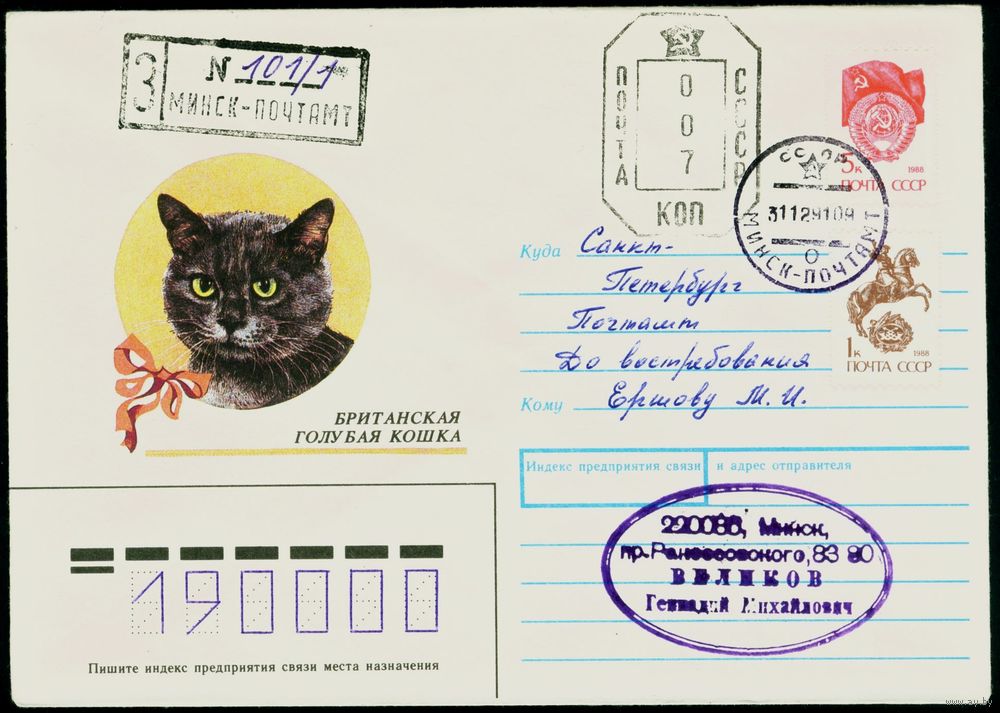 З
N 101/1
МИНСК-ПОЧТАМТ
ПОЧТА
СССР
007
КОП
5к
1988
ПОЧТА СССР
СССР
31129109
МИНСК-ПОЧТАМТ
О
1к
1988
ПОЧТА СССР
Куда Санкт-
Петербург
Почтамт
До востребования
Кому Ершову М. И.
БРИТАНСКАЯ
ГОЛУБАЯ КОШКА
Индекс предприятия связи и адрес отправителя
Минск,
83 80
ВЕЛИКОВ
Геннадий Михайлович
190000
Пишите индекс предприятия связи места назначения
www.ay.by